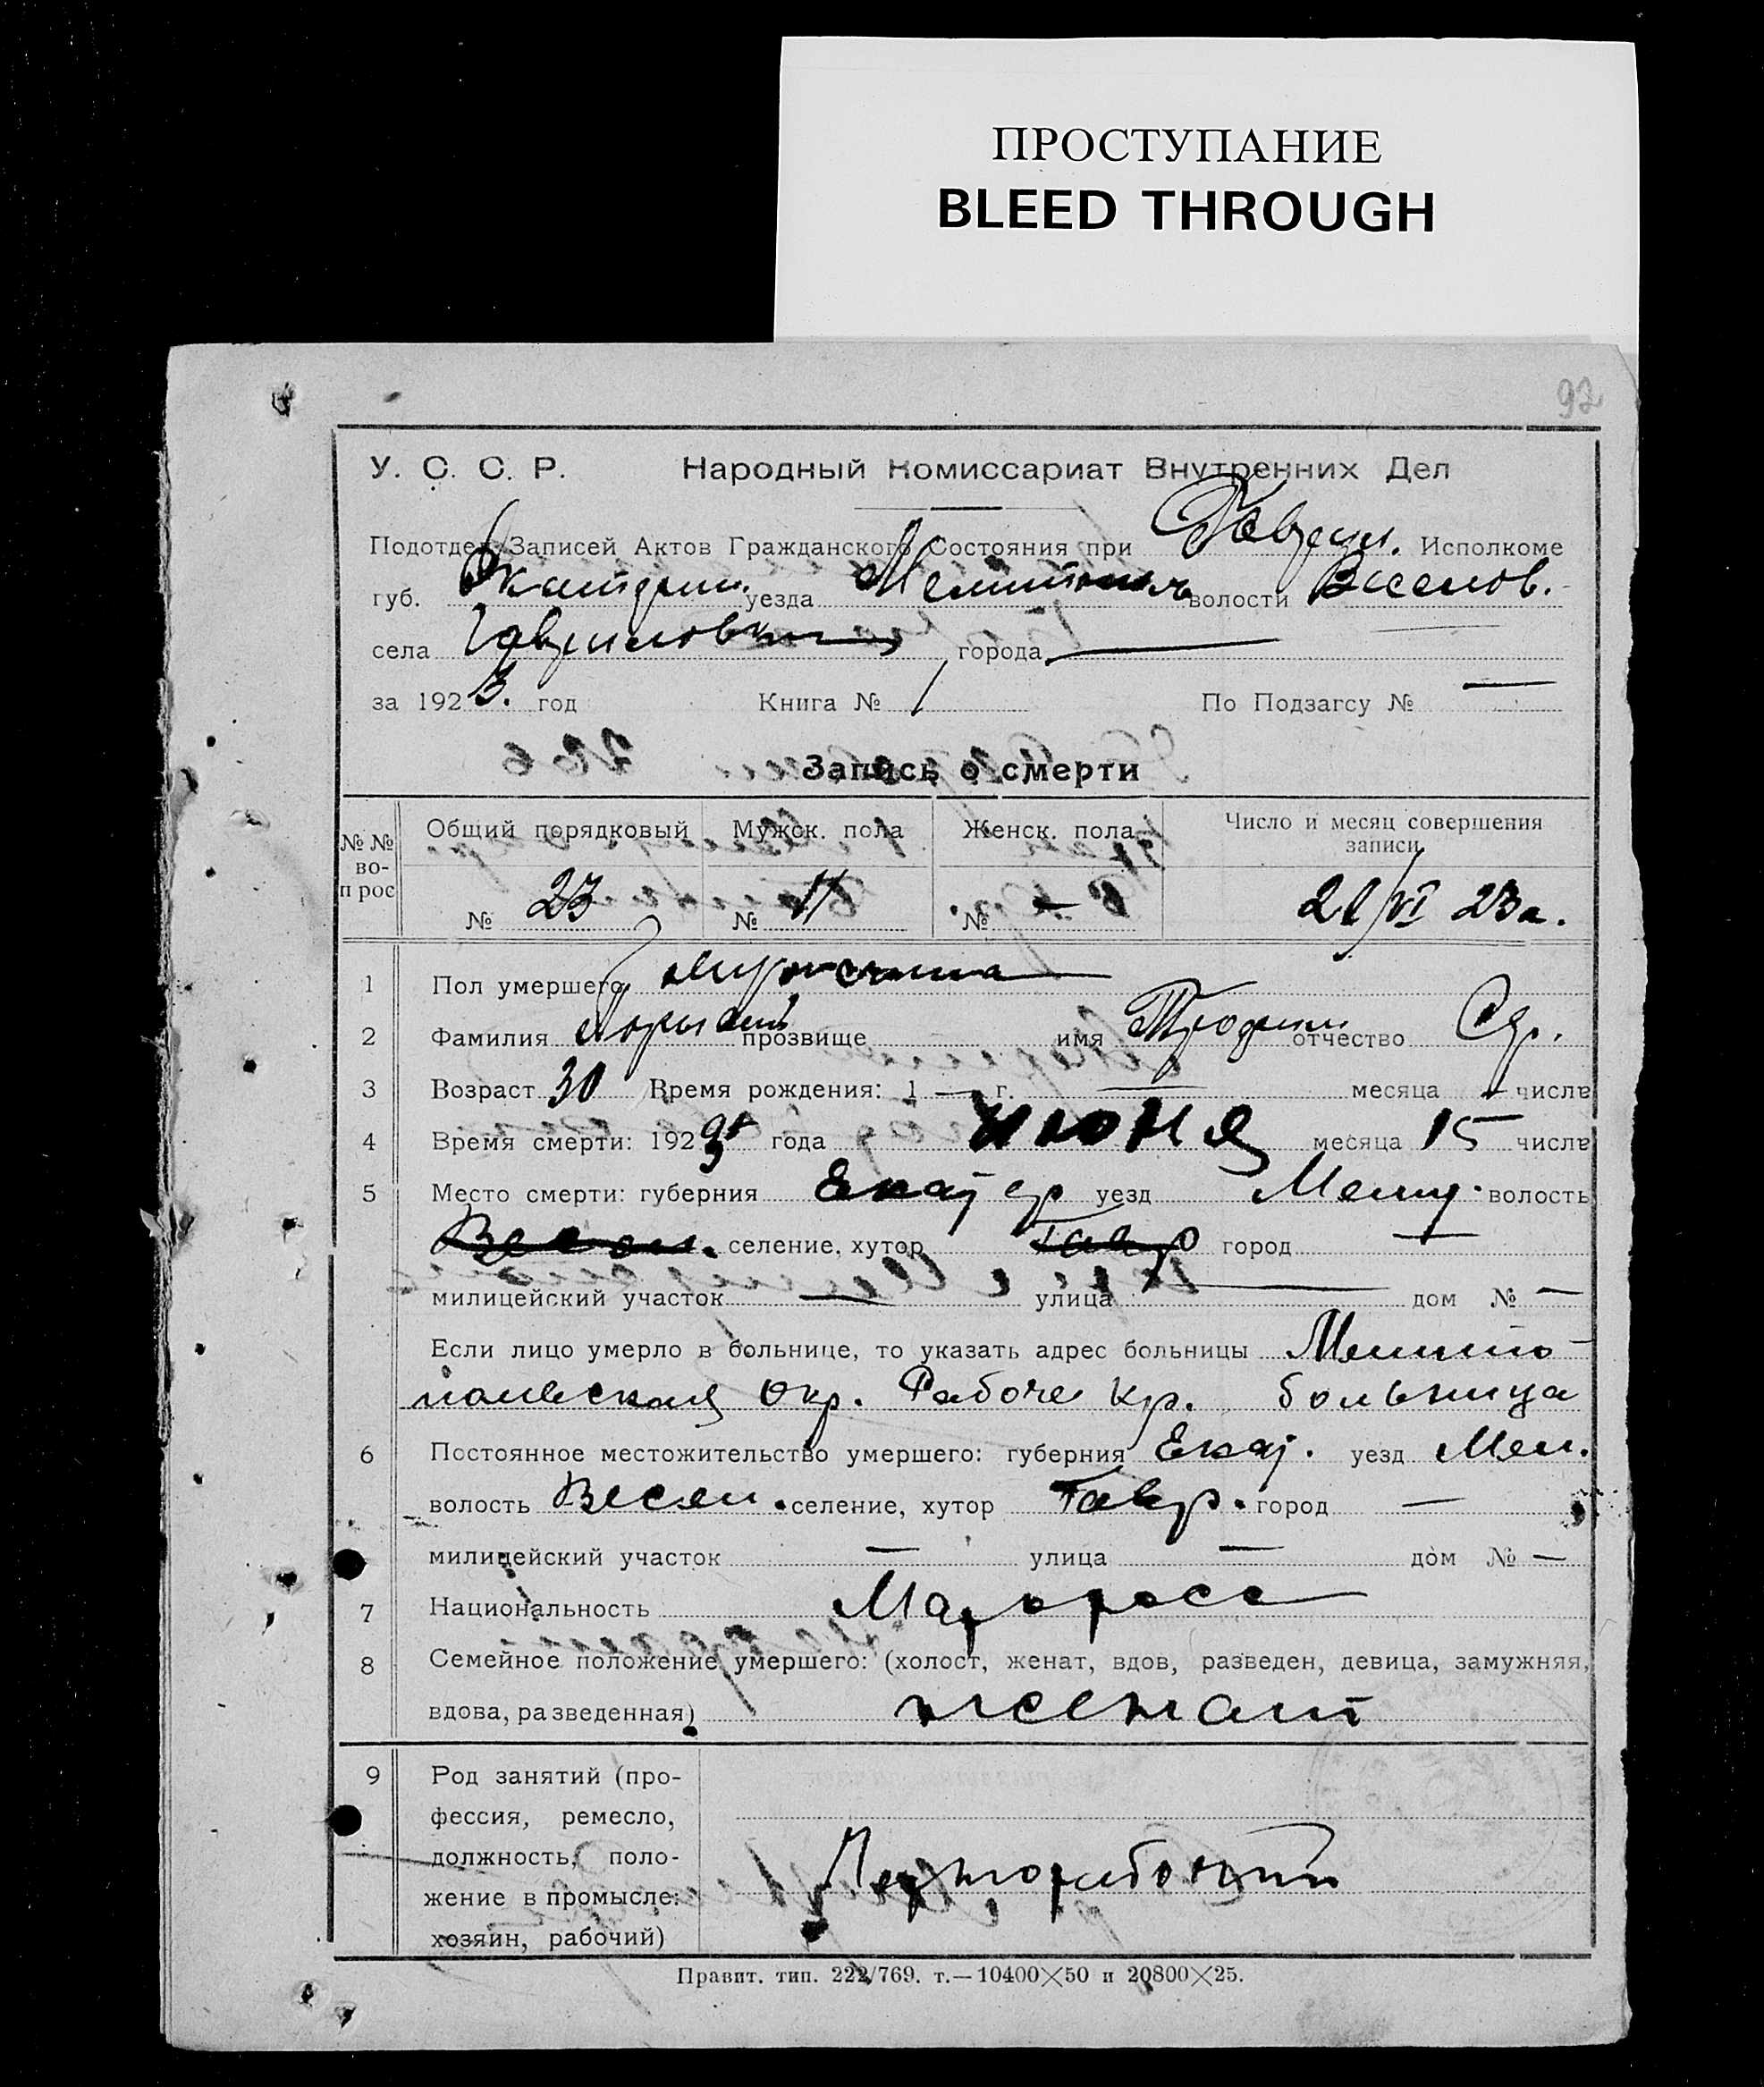 ПРОСТУПАНИЕ
BLEED THROUGH
92
У. С. С. Р. Народный Комиссариат Внутренних Дел
Подотдел Записей Актов Гражданского Состояния при Гаврил. Исполкоме
губ. Екатерин. уезда Мелитополь волости Веселов.
села Гавриловки города —
за 1923. год Книга № 1 По Подзагсу № —
Запись о смерти
№№ вопрос Общий порядковый Мужск. пола Женск. пола Число и месяц совершения записи
№ 23 № 11 № — 21/VI 23 г.
1 Пол умершего мужчина
2 Фамилия прозвище имя Трофим отчество
3 Возраст 30 Время рождения: 1 — г. — месяца — числа
4 Время смерти: 1923 года июня месяца 15 числа
5 Место смерти: губерния Екатер уезд Мелит. волость
Весел. селение, хутор Гавр город —
милицейский участок — улица — дом № —
Если лицо умерло в больнице, то указать адрес больницы Мелито-
польская Окр. Рабоче Кр. больница
6 Постоянное местожительство умершего: губерния Екат. уезд Мел.
волость Весел. селение, хутор Гавр. город —
милицейский участок — улица — дом № —
7 Национальность Малоросс
8 Семейное положение умершего: (холост, женат, вдов, разведен, девица, замужняя,
вдова, разведенная) женат
9 Род занятий (про-
фессия, ремесло,
должность, поло-
жение в промысле:
хозяин, рабочий)
Чернорабочий
Правит. тип. 222/769. т.—10400×50 и 20800×25.